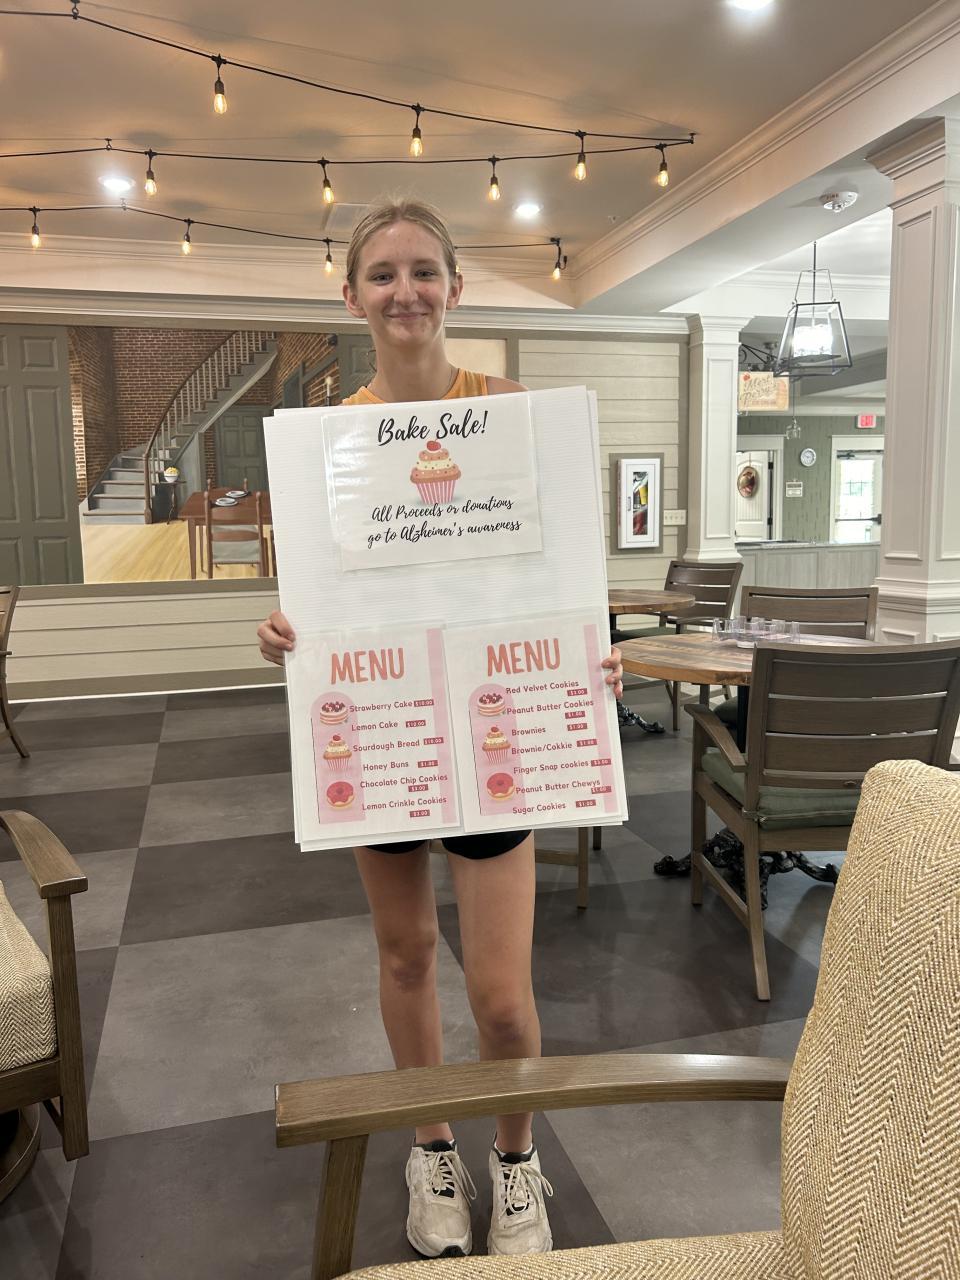 Bake Sale!
All Proceeds or donations
go to Alzheimer's awareness
MENU
Strawberry Cake $10.00
Lemon Cake $10.00
Sourdough Bread $10.00
Honey Buns $1.00
Chocolate Chip Cookies
$3.00
Lemon Crinkle Cookies
$3.00
MENU
Red Velvet Cookies
$3.00
Peanut Butter Cookies
$1.00
Brownies $1.00
Brownie/Cokkie $1.00
Finger Snap cookies $3.00
Peanut Butter Chewys
$1.00
Sugar Cookies $1.00
EXIT